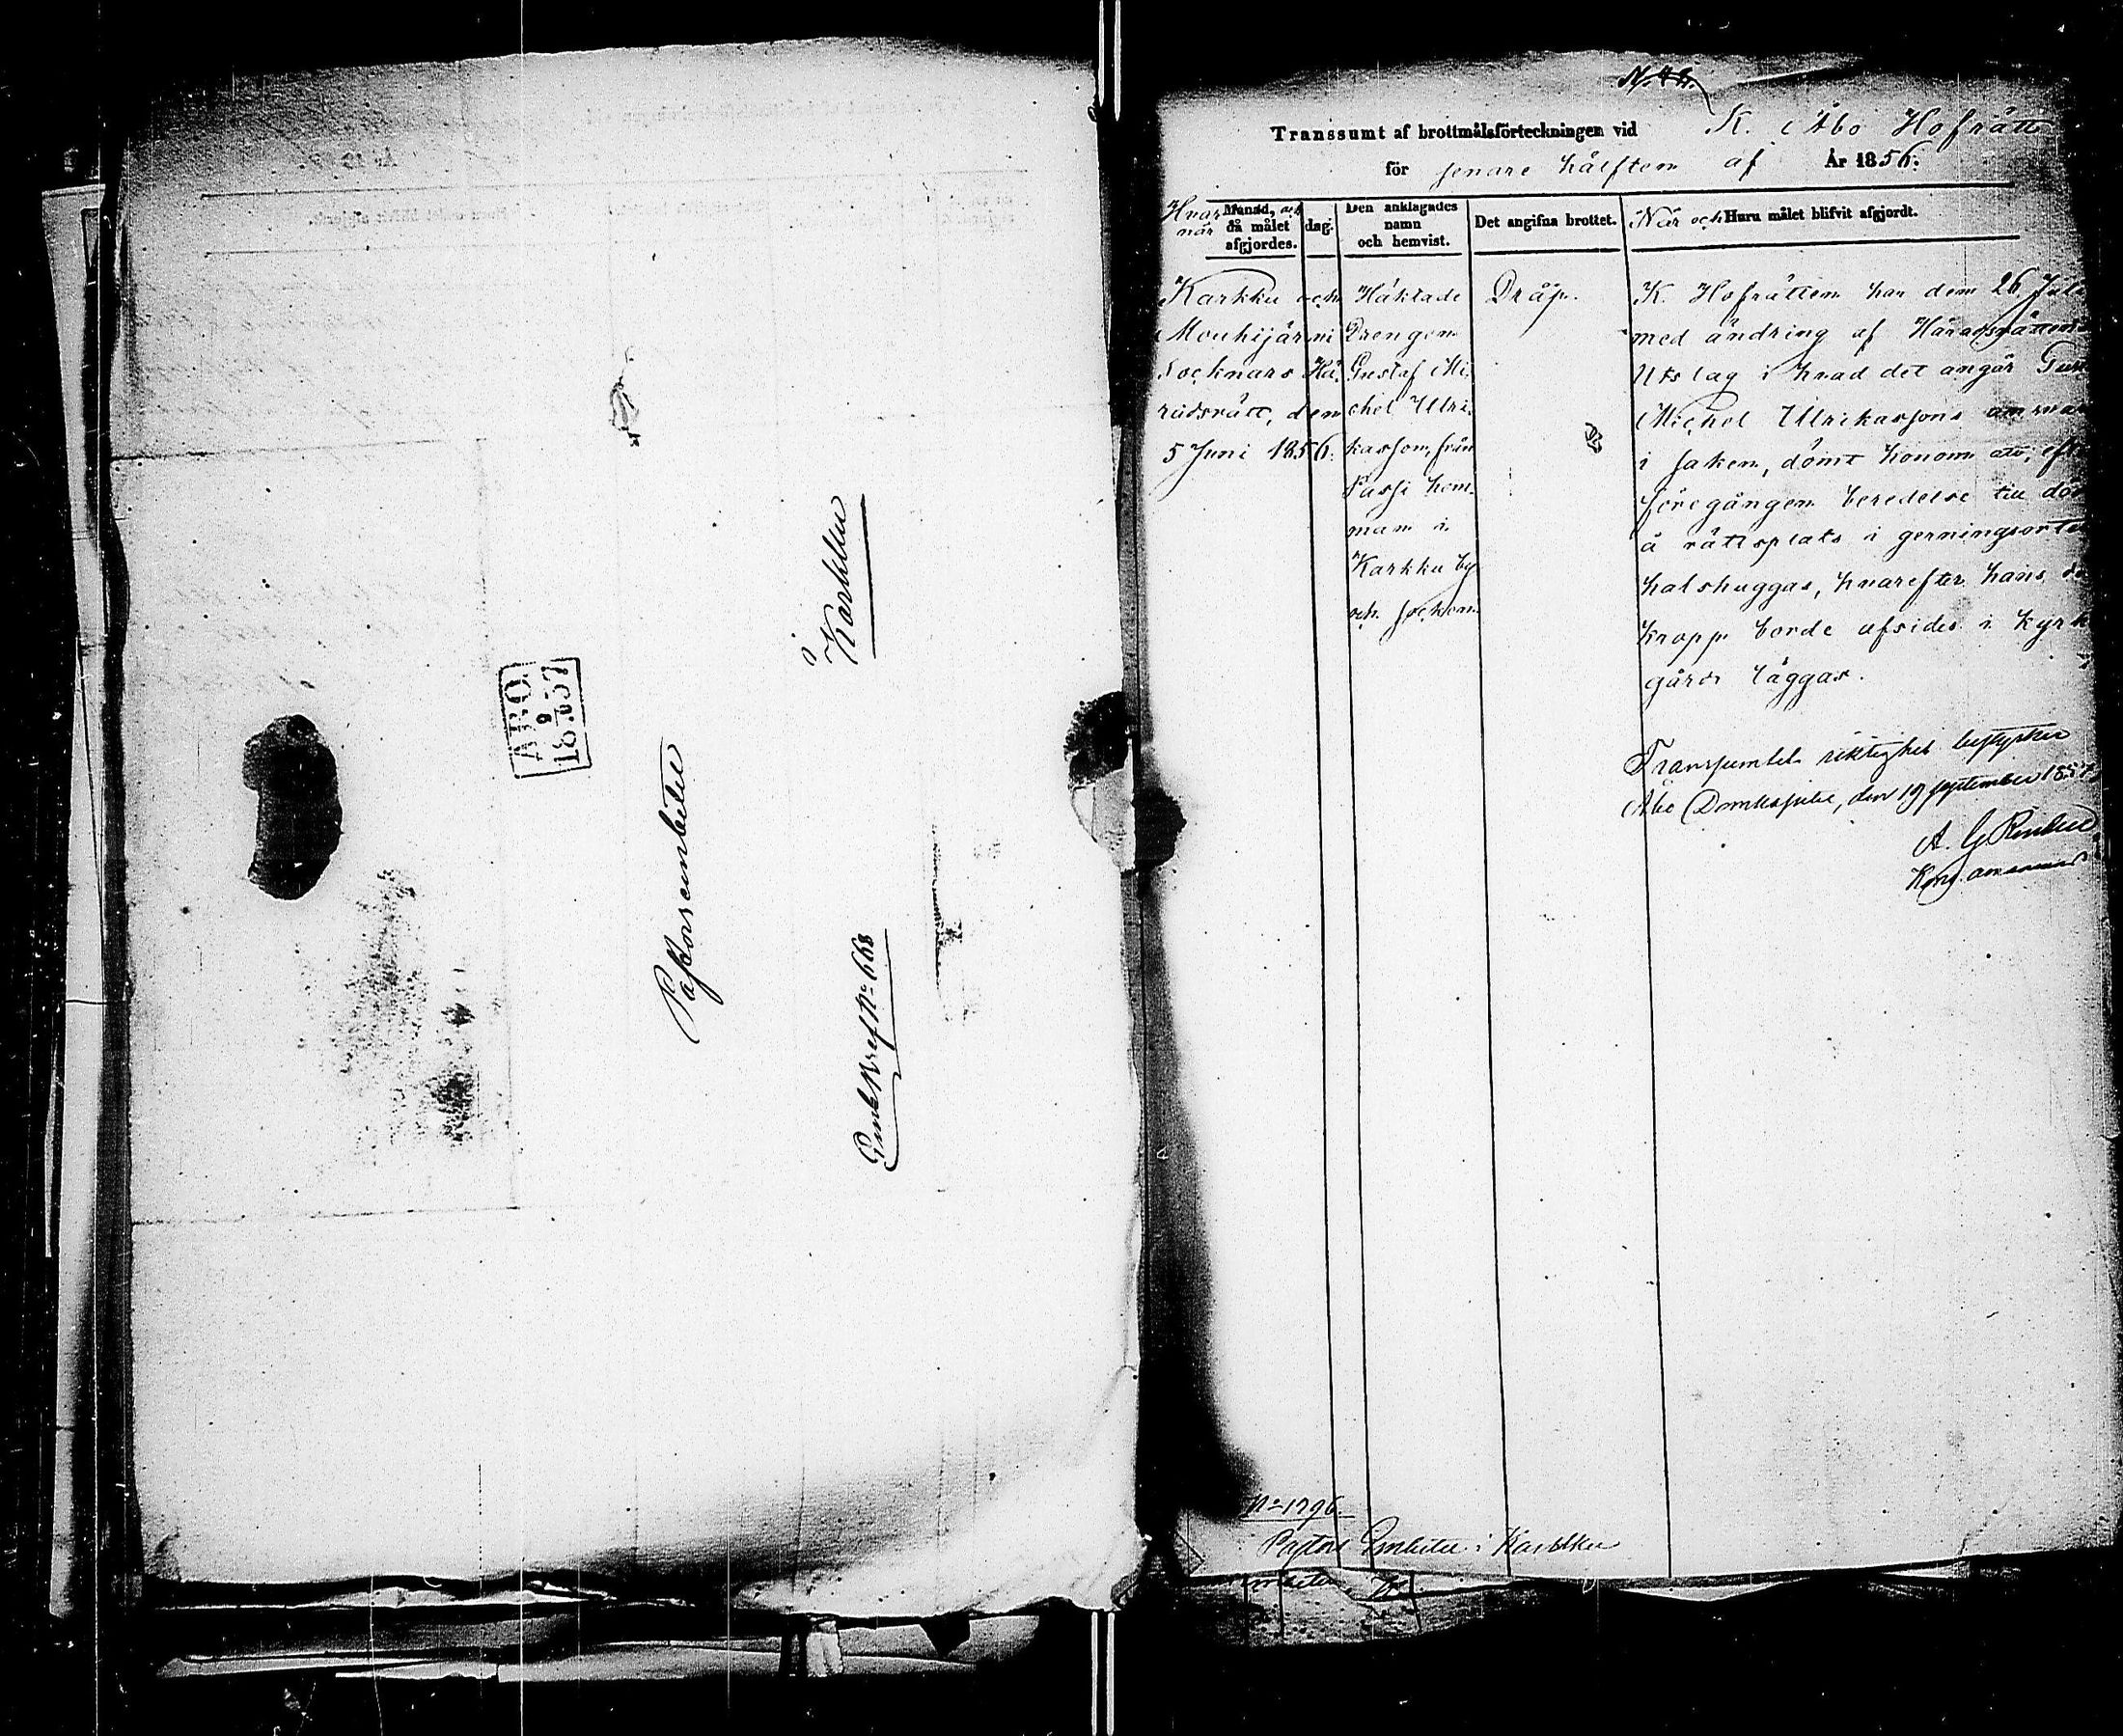 i Karkku
ÅBO
18 9/9 57
Pastorsembetet
Embkbref No 668
Transsumt af brottmålsförteckningen vid K. Åbo Hofrätt
för senare hälften af År 1856.
Hvar Månad, och dag.
när då målet
afgjordes.
Den anklagades
namn
och hemvist.
Det angifna brottet.
När och Huru målet blifvit afgjordt.
Karkku och
Mouhijärvi
Socknars Hä-
radsrätt, den
5 Juni 1856.
Häktade
Drengen
Gustaf Mi-
chel Ulri-
kasson, från
Passi hem-
man i
Karkku by
och socken
Dråp.
K. Hofrätten har den 26 Juli
med ändring af Häradsrättens
Utslag i hvad det angår Gust
Michel Ulrikassons ansvar
i saken, dömt honom att, eft
föregången beredelse till död
å rättsplats i gerningsorten
halshuggas, hvarefter hans dö
kropp borde afsides i kyrk
gård läggas.
Transsumtets riktighet bestyrker
Åbo Domkapitel, den 19 September 1857
A. G.
No 1796.
Pastors Embetet i Karkku